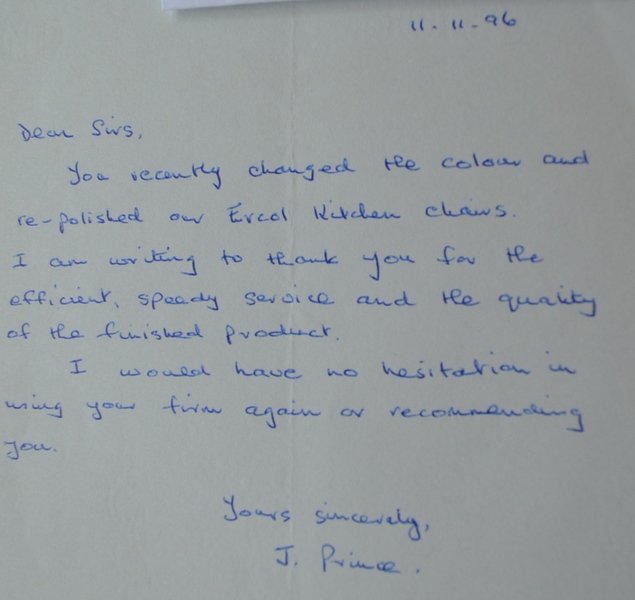 11-11-96
Dear Sirs,
You recently changed the colour and
re-polished our Ercol Kitchen chairs.
I am writing to thank you for the
efficient, speedy service and the quality
of the finished product.
I would have no hesitation in
using your firm again or recommending
you.
Yours sincerely,
J. Prince.